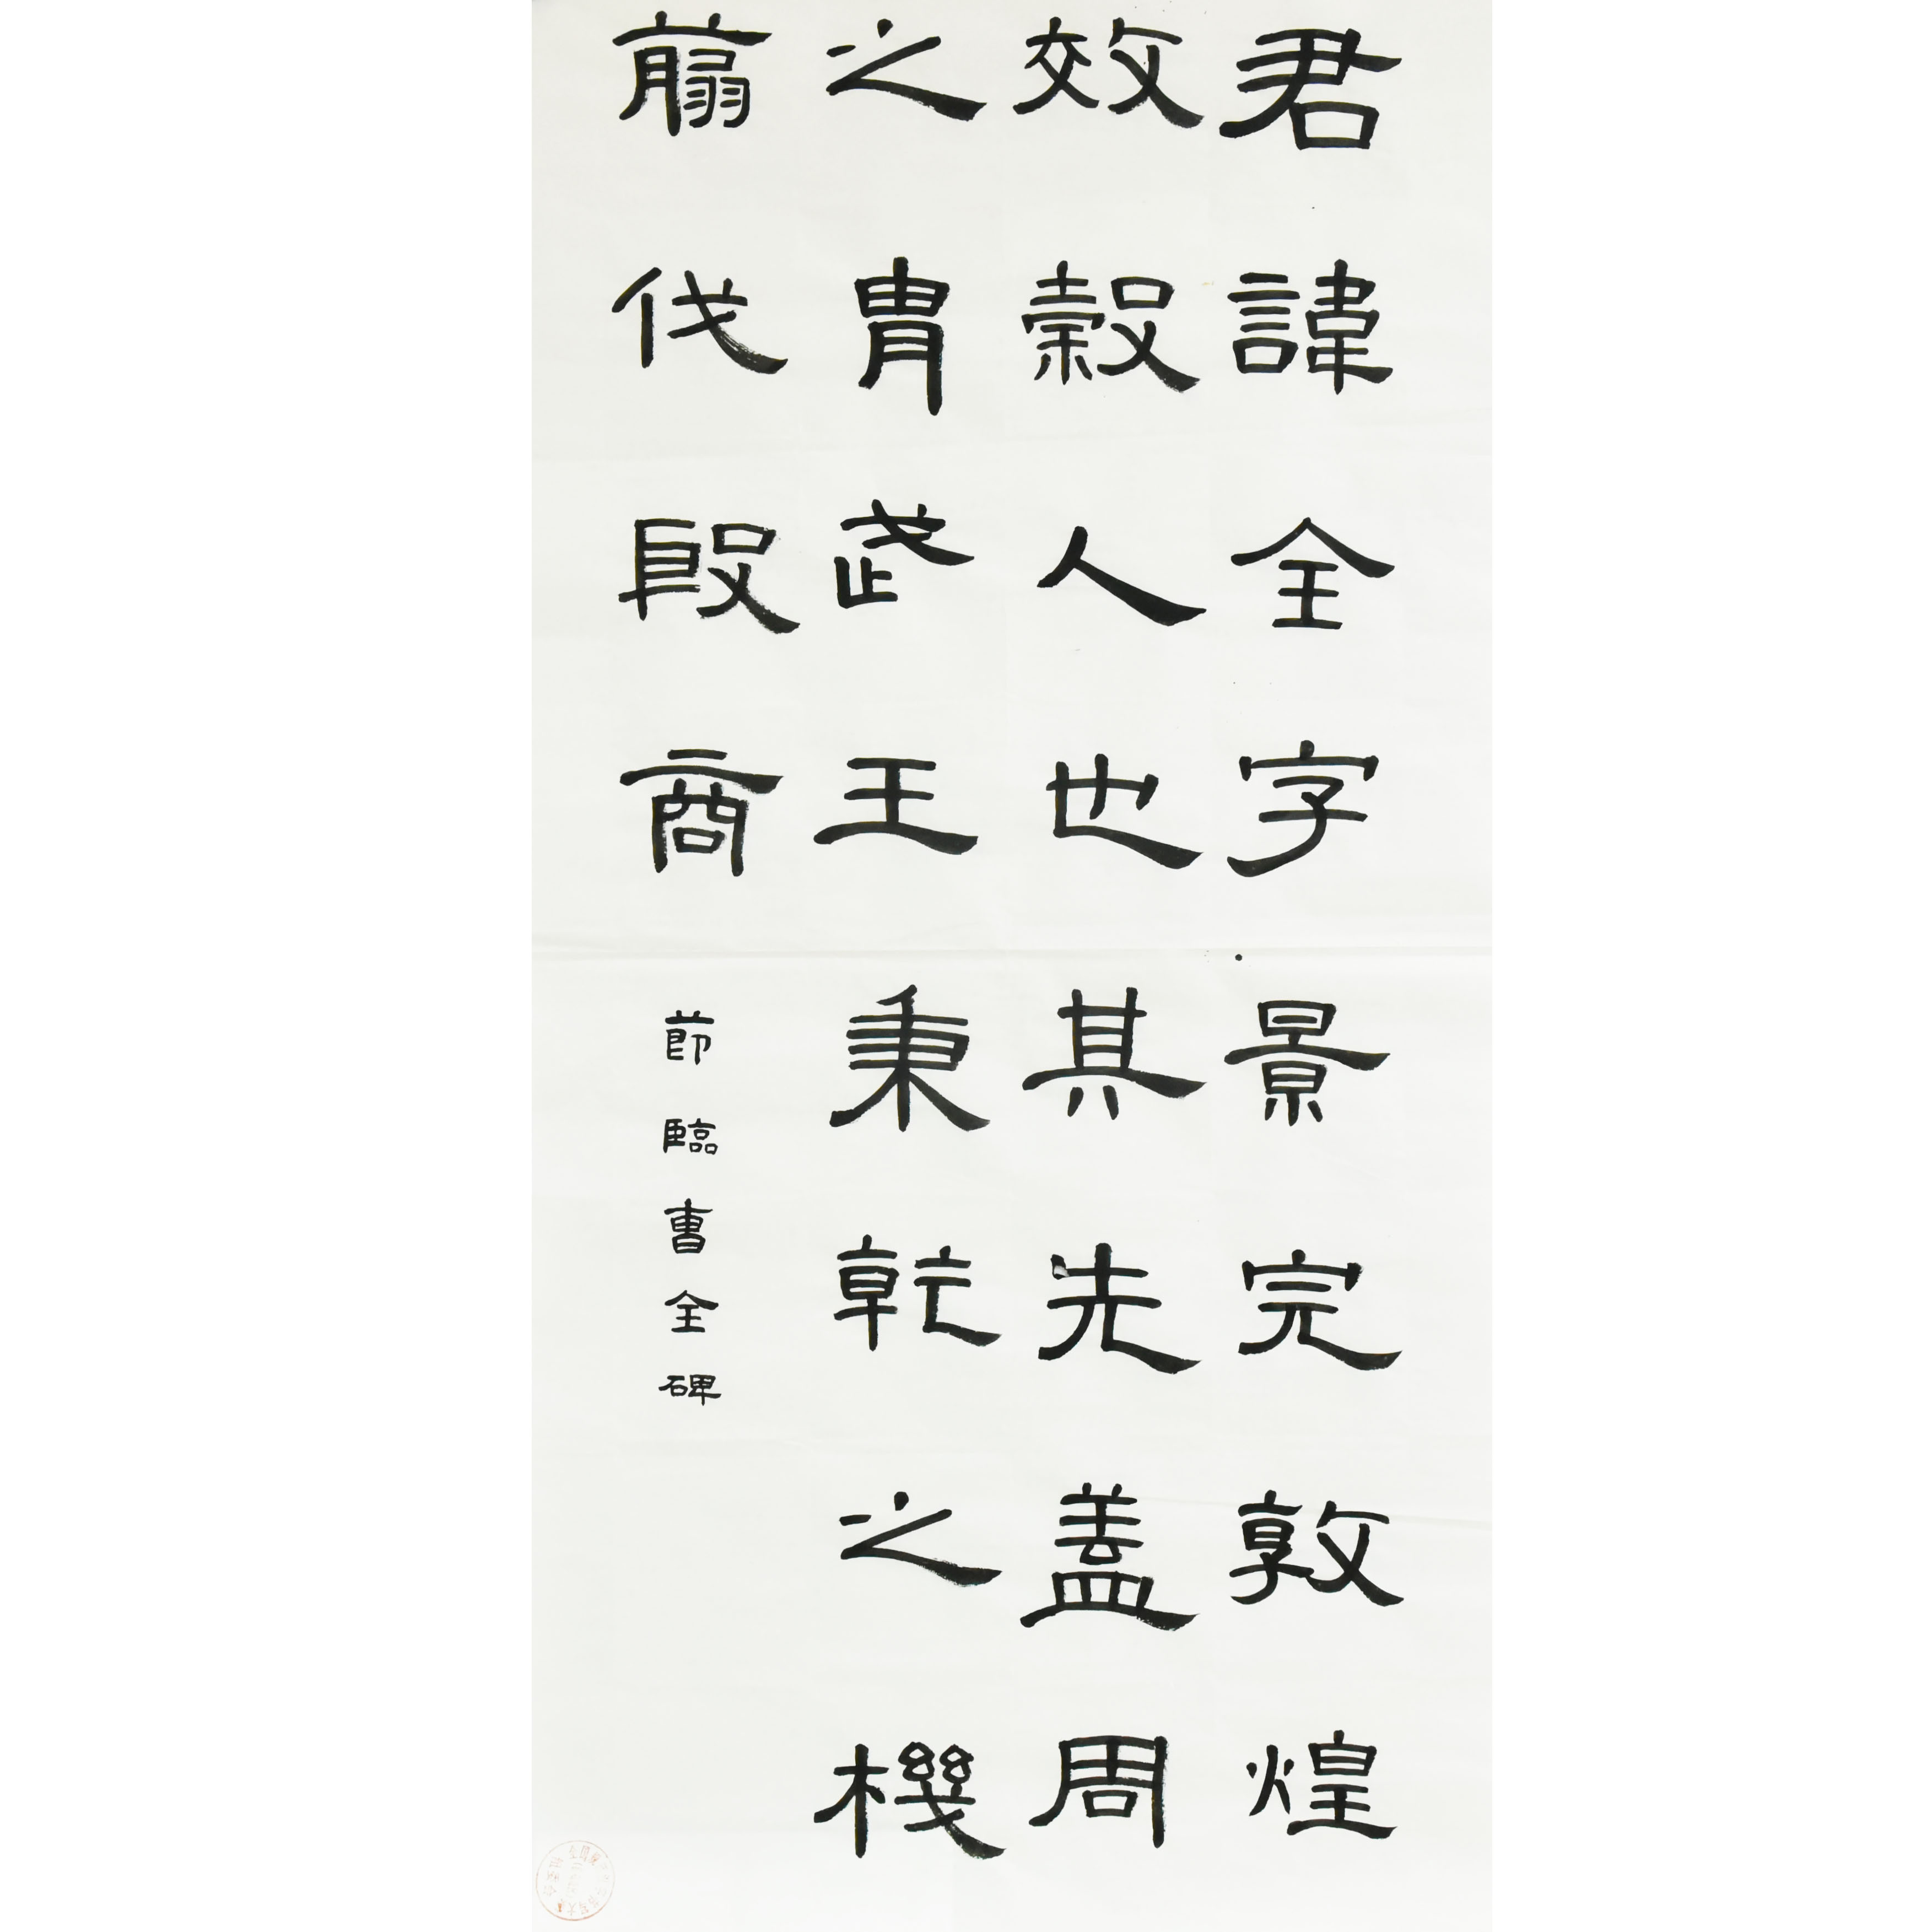 君諱全字景完敦煌
效穀人也其先蓋周
之胄武王秉乾之機
翦伐殷商
節臨曹全碑